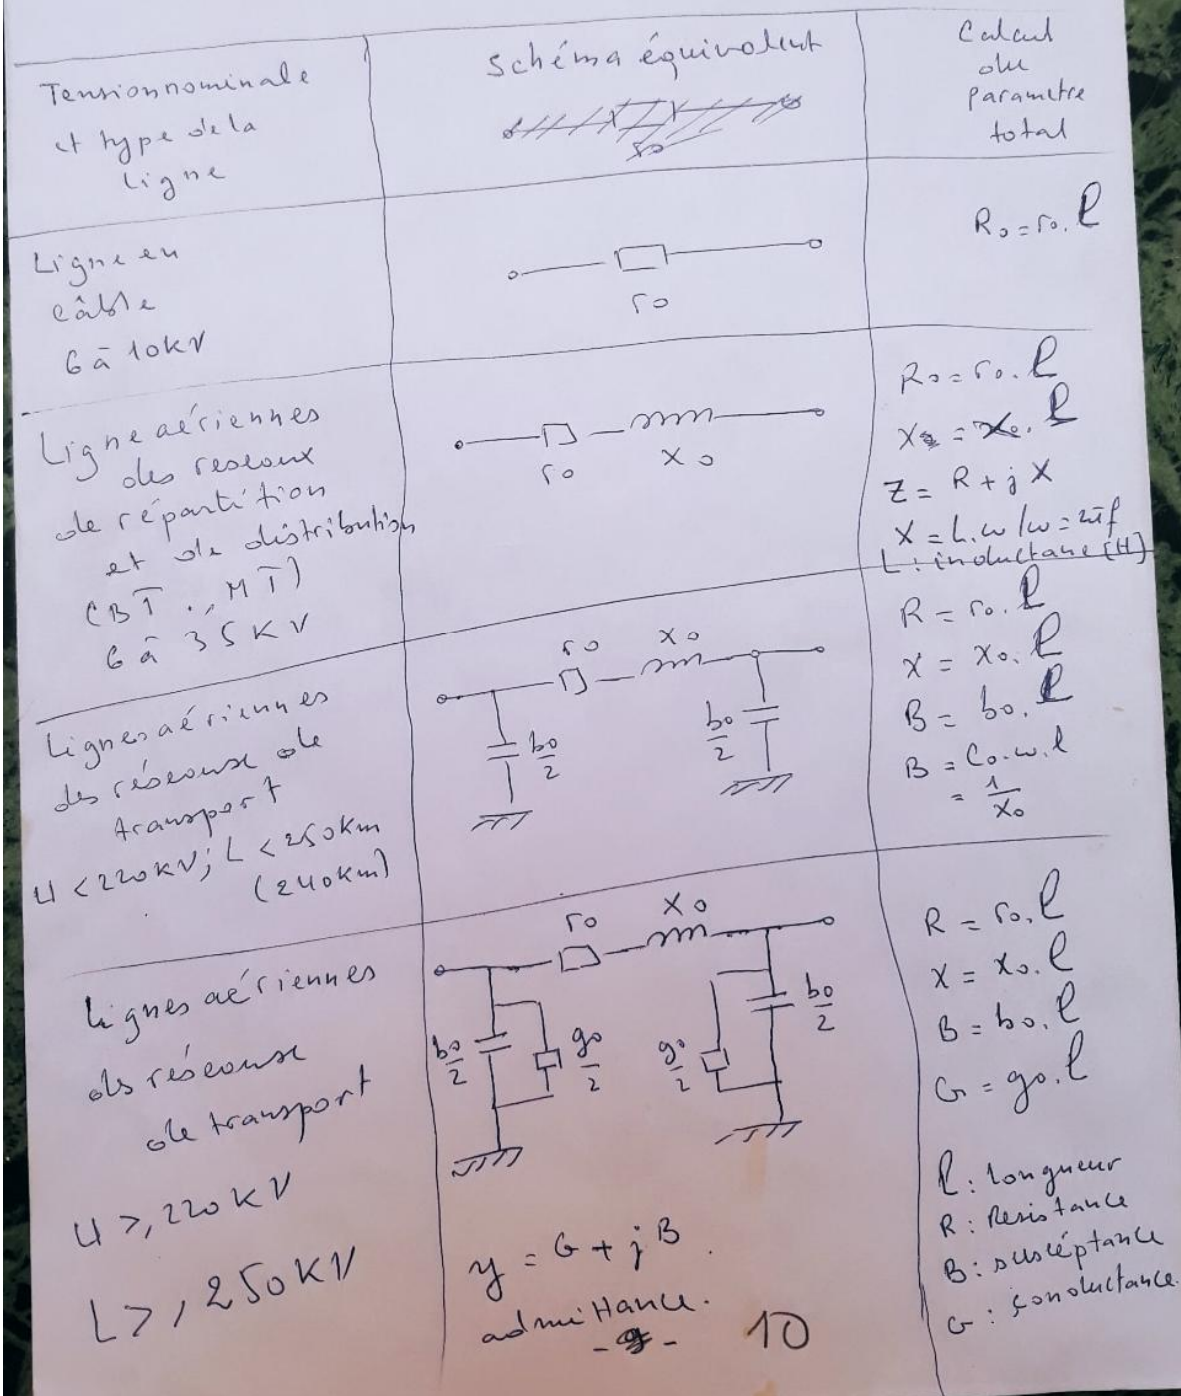 Tension nominale
et type de la
ligne
Schéma équivalent
Calcul
du
parametre
total
Ligne en
câble
6 à 10KV
r0
R0 = r0. l
Ligne aériennes
des reseaux
de répartition
et de distribution
(BT., MT)
6 à 35KV
r0
X0
R0 = r0. l
X = x0. l
Z = R + jX
X = L.ω / ω = 2πf
L : inductane [H]
Lignes aériennes
des réseaux de
transport
U < 220KV; L < 250Km
(240Km)
r0 x0
b0/2
b0/2
R = r0. l
X = x0. l
B = b0. l
B = C0.ω.l
= 1/X0
lignes aériennes
des réseaux
de transport
U >, 220KV
L >, 250KV
r0 X0
b0/2
g0/2
g0/2
b0/2
y = G + jB.
admittance.
10
R = r0. l
X = x0. l
B = b0. l
G = g0. l
l : longueur
R : Resistance
B : suscéptance
G : conductance.